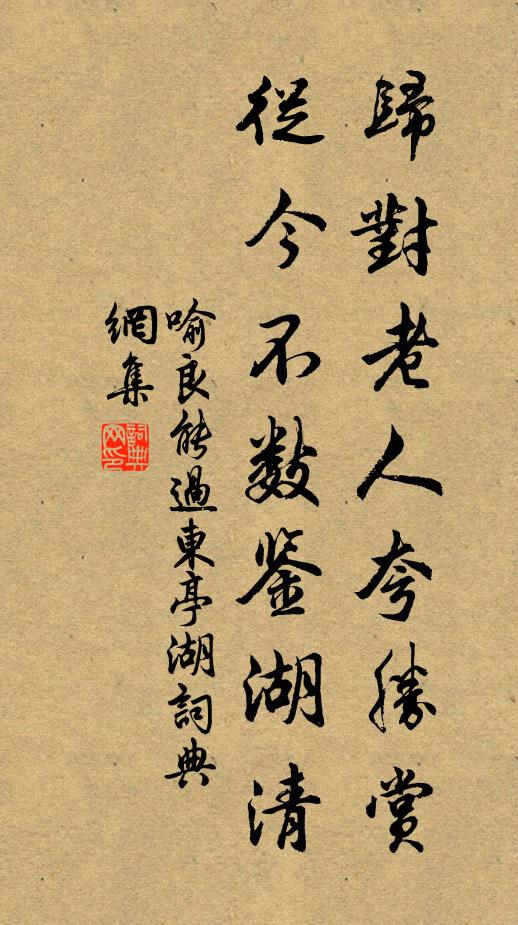 歸對老人夸勝賞
從今不數鉴湖清
喻良能過東亭湖詞典
網集
詞典
网印